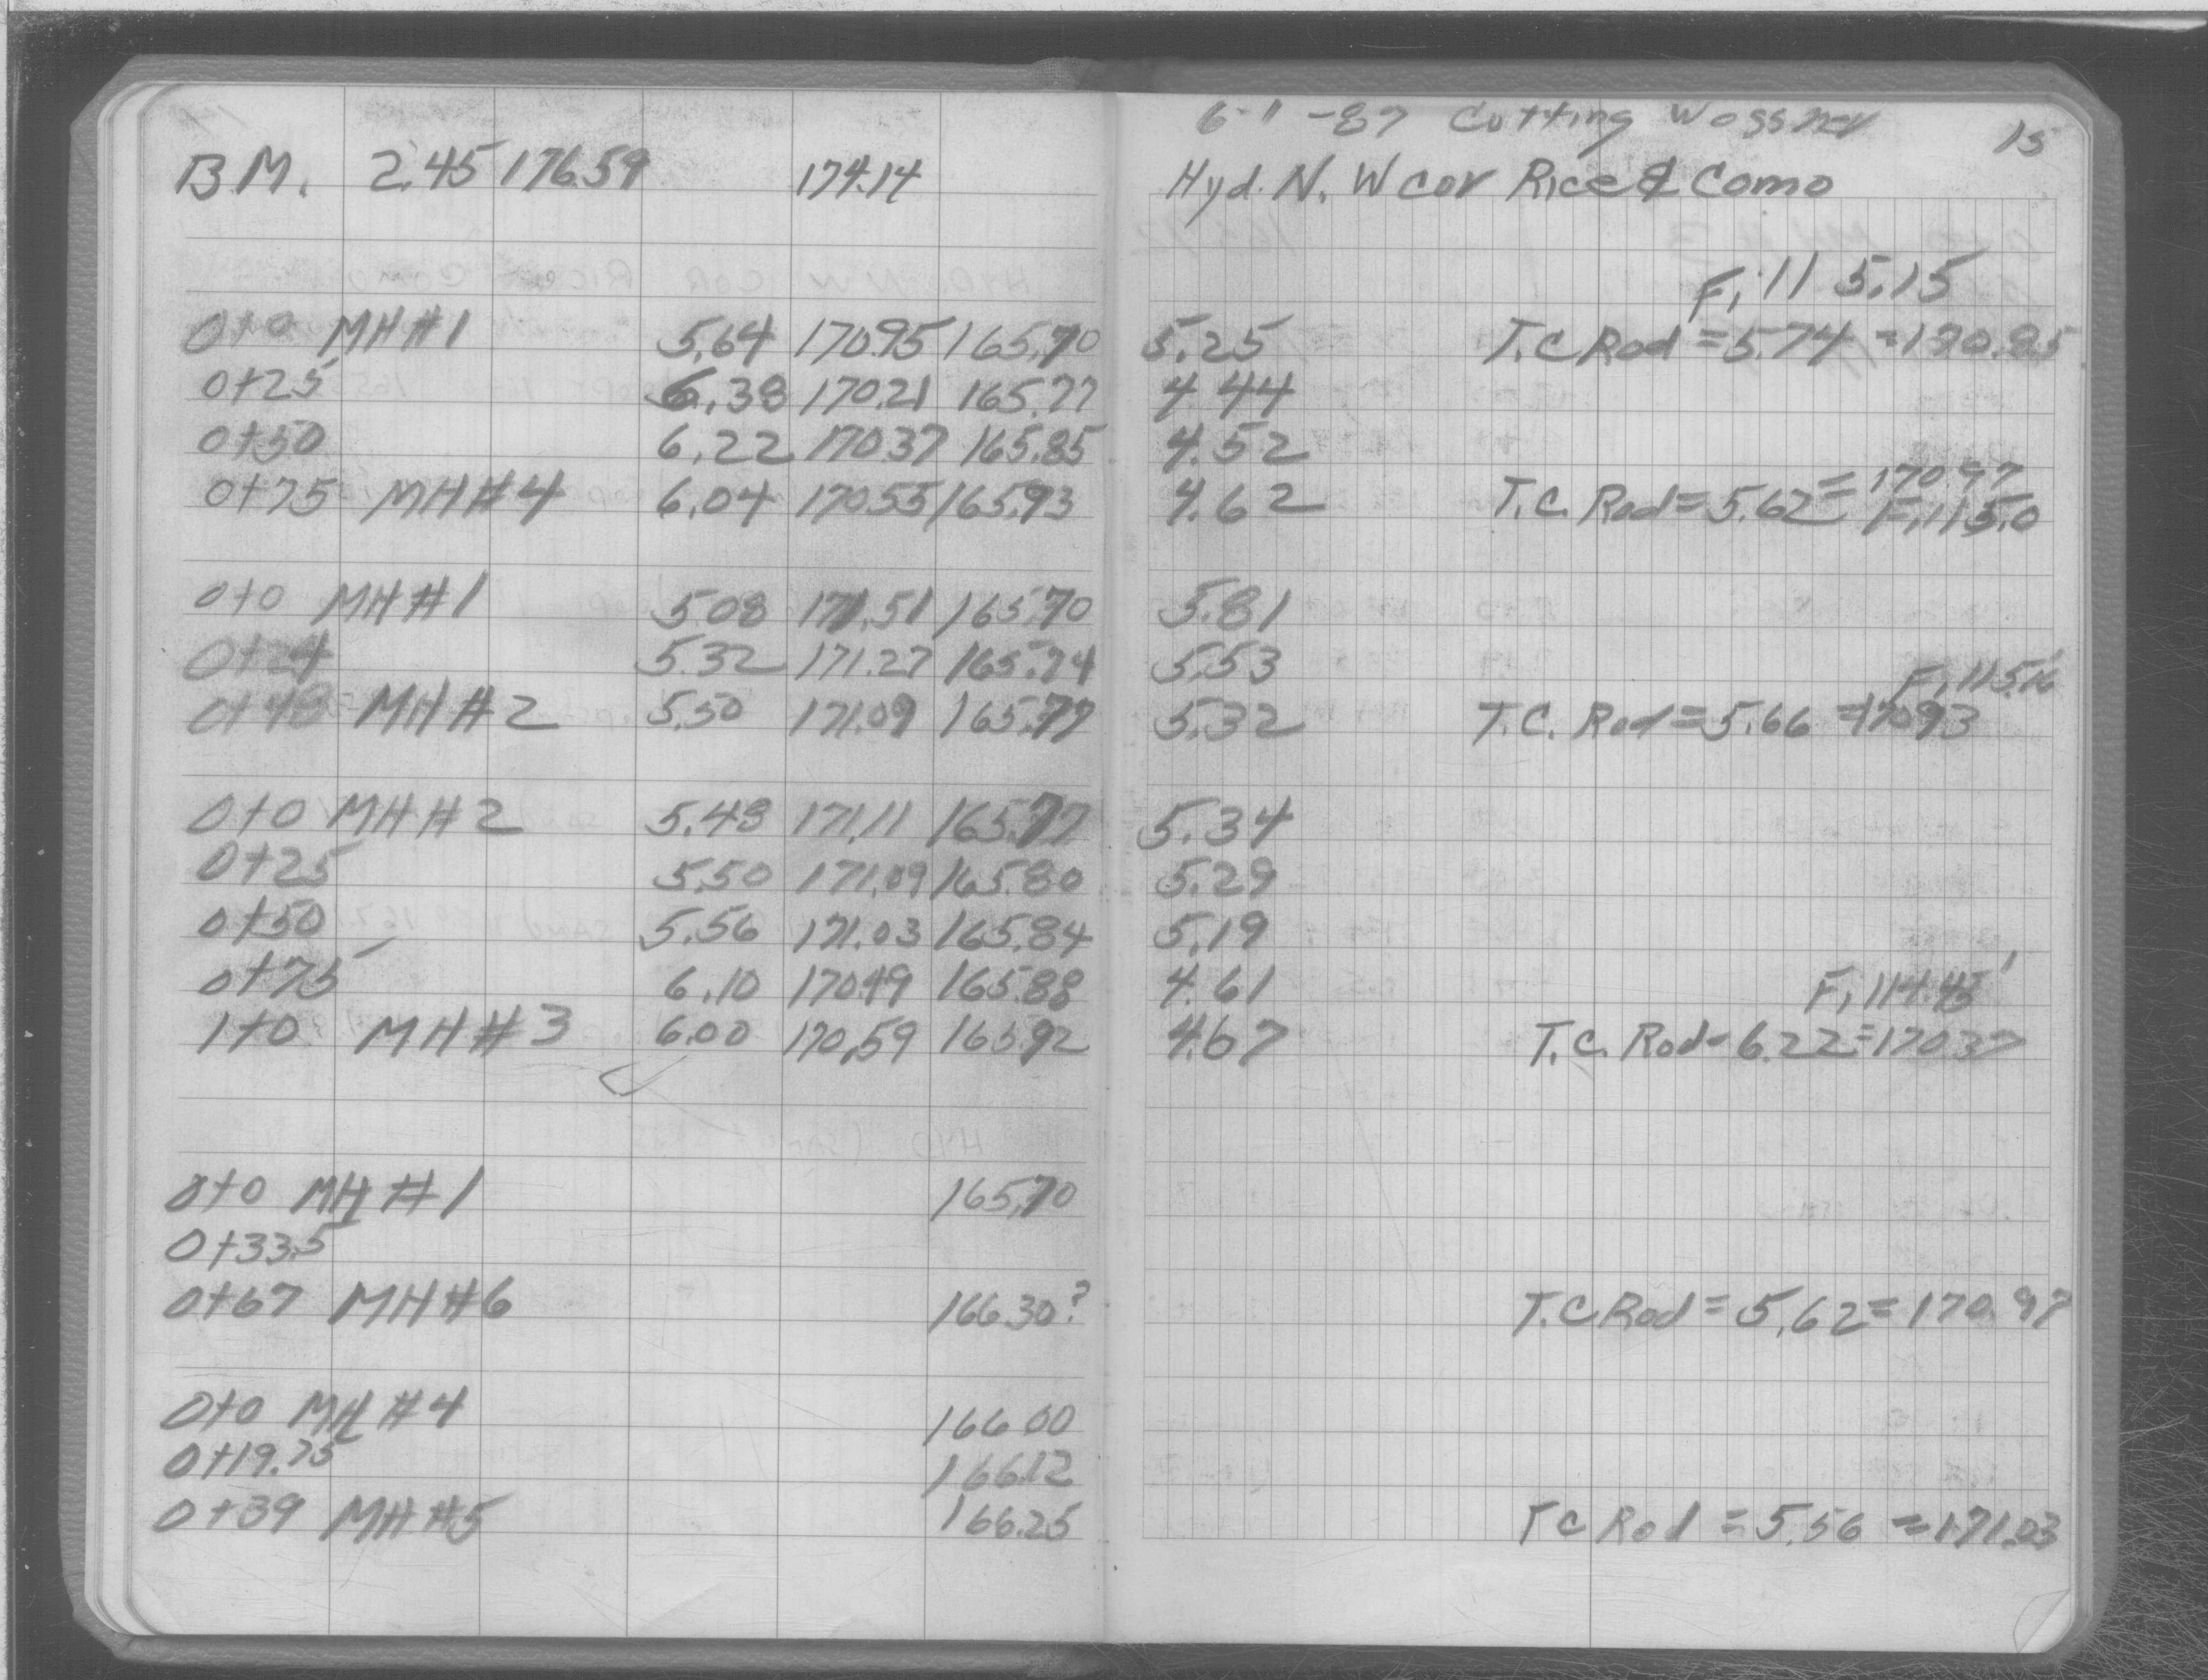 6-11-87 Cutting Wossner 15
B M. 2.45 176.59 174.14 Hyd. N. W cor Rice & Como
Fill 5.15
0+0 MH#1 5.64 170.95 165.70 5.25 T.C Rod = 5.74 = 170.85
0+25 6.38 170.21 165.77 4.44
0+50 6.22 170.37 165.85 4.52
0+75 MH#4 6.04 170.55 165.93 4.62 T.C. Rod = 5.62 = 170.97
Fill 5.0
0+0 MH#1 5.08 171.51 165.70 5.81
0+24 5.32 171.27 165.74 5.53
Fill 5.16
0+48 MH#2 5.50 171.09 165.77 5.32 T.C. Rod = 5.66 = 170.93
0+0 MH#2 5.48 171.11 165.77 5.34
0+25 5.50 171.09 165.80 5.29
0+50 5.56 171.03 165.84 5.19
0+75 6.10 170.49 165.88 4.61
Fill 4.45'
1+0 MH#3 6.00 170.59 165.92 4.67 T.C. Rod = 6.22 = 170.37
0+0 MH#1 165.70
0+33.5
0+67 MH#6 166.30? T.C Rod = 5.62 = 170.97
0+0 MH#4 166.00
0+19.75 166.12
0+39 MH#5 166.25 TC Rod = 5.56 = 171.03